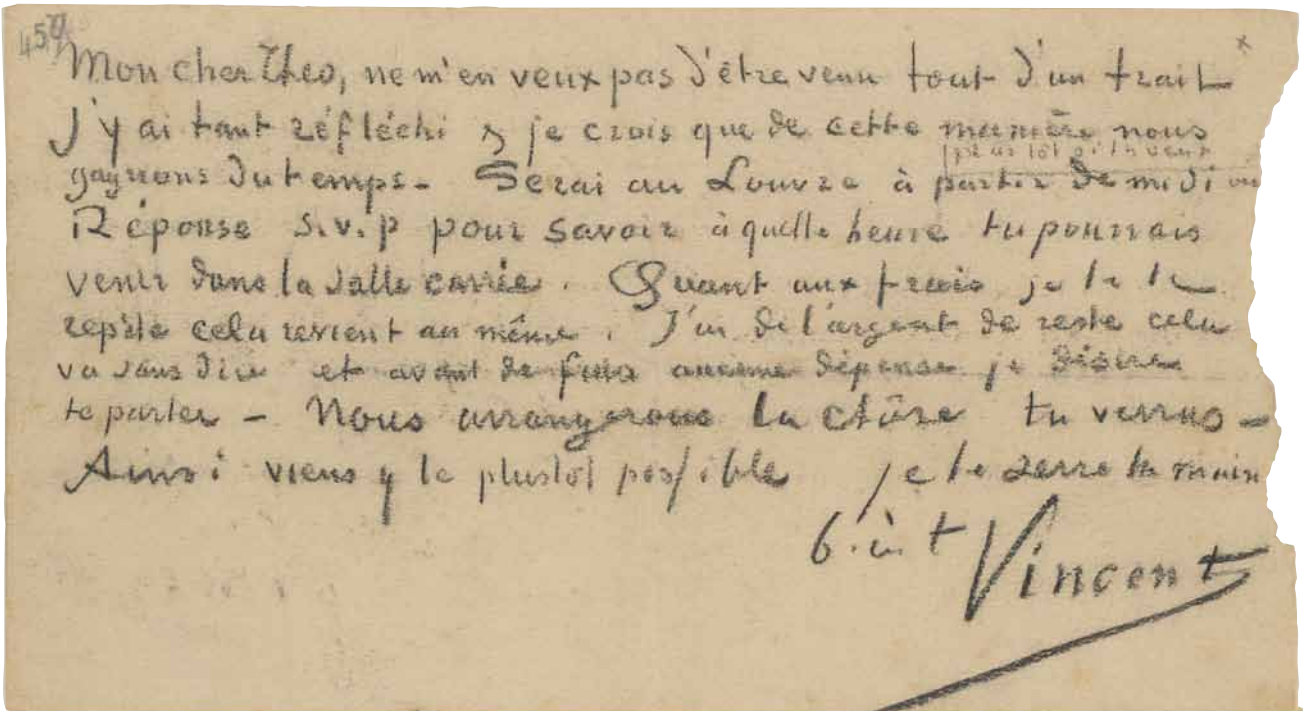 459
Mon cher Theo, ne m'en veux pas d'être venu tout d'un trait
J'y ai tant réfléchi & je crois que de cette manière nous
gagnons du temps - Serai au Louvre à partir de midi ou
plus tôt si tu veux
Réponse s.v.p pour savoir à quelle heure tu pourrais
venir dans la salle carrée. Quant aux frais je te le
repète cela revient au même. J'ai de l'argent de reste cela
va sans dire et avant de faire aucune dépense je désire
te parler - Nous arrangerons la chôse tu verras -
Ainsi viens y le plustôt possible je te serre la main
b. à t
Vincent